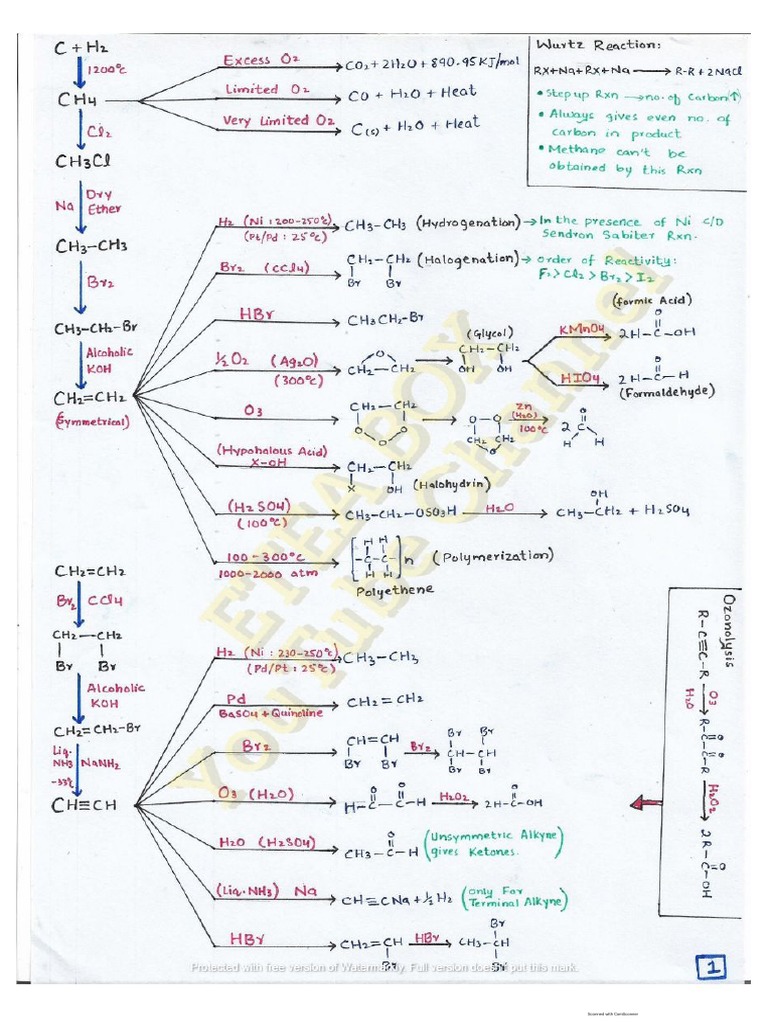 C + H2
1200°C
CH4
Excess O2
CO2 + 2H2O + 890.95 KJ/mol
Limited O2
CO + H2O + Heat
Very Limited O2
C(s) + H2O + Heat
Cl2
CH3Cl
Na Dry Ether
CH3-CH3
Br2
CH3-CH2-Br
Alcoholic
KOH
CH2=CH2
(Symmetrical)
Wurtz Reaction:
RX+Na+RX+Na → R-R + 2NaCl
• Step up Rxn → no. of Carbon ↑
• Always gives even no. of
carbon in product
• Methane can't be
obtained by this Rxn
H2 (Ni : 200-250°C)
(Pt/Pd : 25°C)
CH3-CH3 (Hydrogenation) → In the presence of Ni C/D
Sendron Sabiter Rxn.
Br2 (CCl4)
CH2-CH2 (Halogenation) → order of Reactivity:
Br Br
F2 > Cl2 > Br2 > I2
HBr
CH3CH2-Br
½O2 (Ag2O)
(300°C)
O
CH2-CH2
(Glycol)
CH2-CH2
OH OH
KMnO4
(formic Acid)
O
2H-C-OH
HIO4
O
2H-C-H
(Formaldehyde)
O3
CH2-CH2
O O
O
O-O
CH2 CH2
O
Zn
(H2O)
100°C
O
2 C
H H
(Hypohalous Acid)
X-OH
CH2-CH2
X OH (Halohydrin)
(H2SO4)
(100°C)
CH3-CH2-OSO3H
H2O
OH
CH3-CH2 + H2SO4
100-300°C
1000-2000 atm
H H
[-C-C-]n (Polymerization)
H H
Polyethene
CH2=CH2
Br2 CCl4
CH2-CH2
Br Br
Alcoholic
KOH
CH2=CH2-Br
Liq.
NH3 NaNH2
-33°C
CH≡CH
H2 (Ni : 230-250°C)
(Pd/Pt : 25°C)
CH3-CH3
Pd
BaSO4 + Quinoline
CH2=CH2
Br2
CH=CH
Br Br
Br2
Br Br
CH-CH
Br Br
O3 (H2O)
O O
H-C-C-H
H2O2
O
2H-C-OH
H2O (H2SO4)
O
CH3-C-H
(Unsymmetric Alkyne
gives Ketones.)
(Liq. NH3) Na
CH≡CNa + ½H2
(Only For
Terminal Alkyne)
HBr
CH2=CH
Br
HBr
Br
CH3-CH
Br
Ozonolysis
R-C≡C-R
O3
H2O
O O
R-C-C-R
H2O2
O
2R-C-OH
1
ETEA BOX
YouTube Channel
Protected with free version of Watermarkly. Full version doesn't put this mark.
Scanned with CamScanner